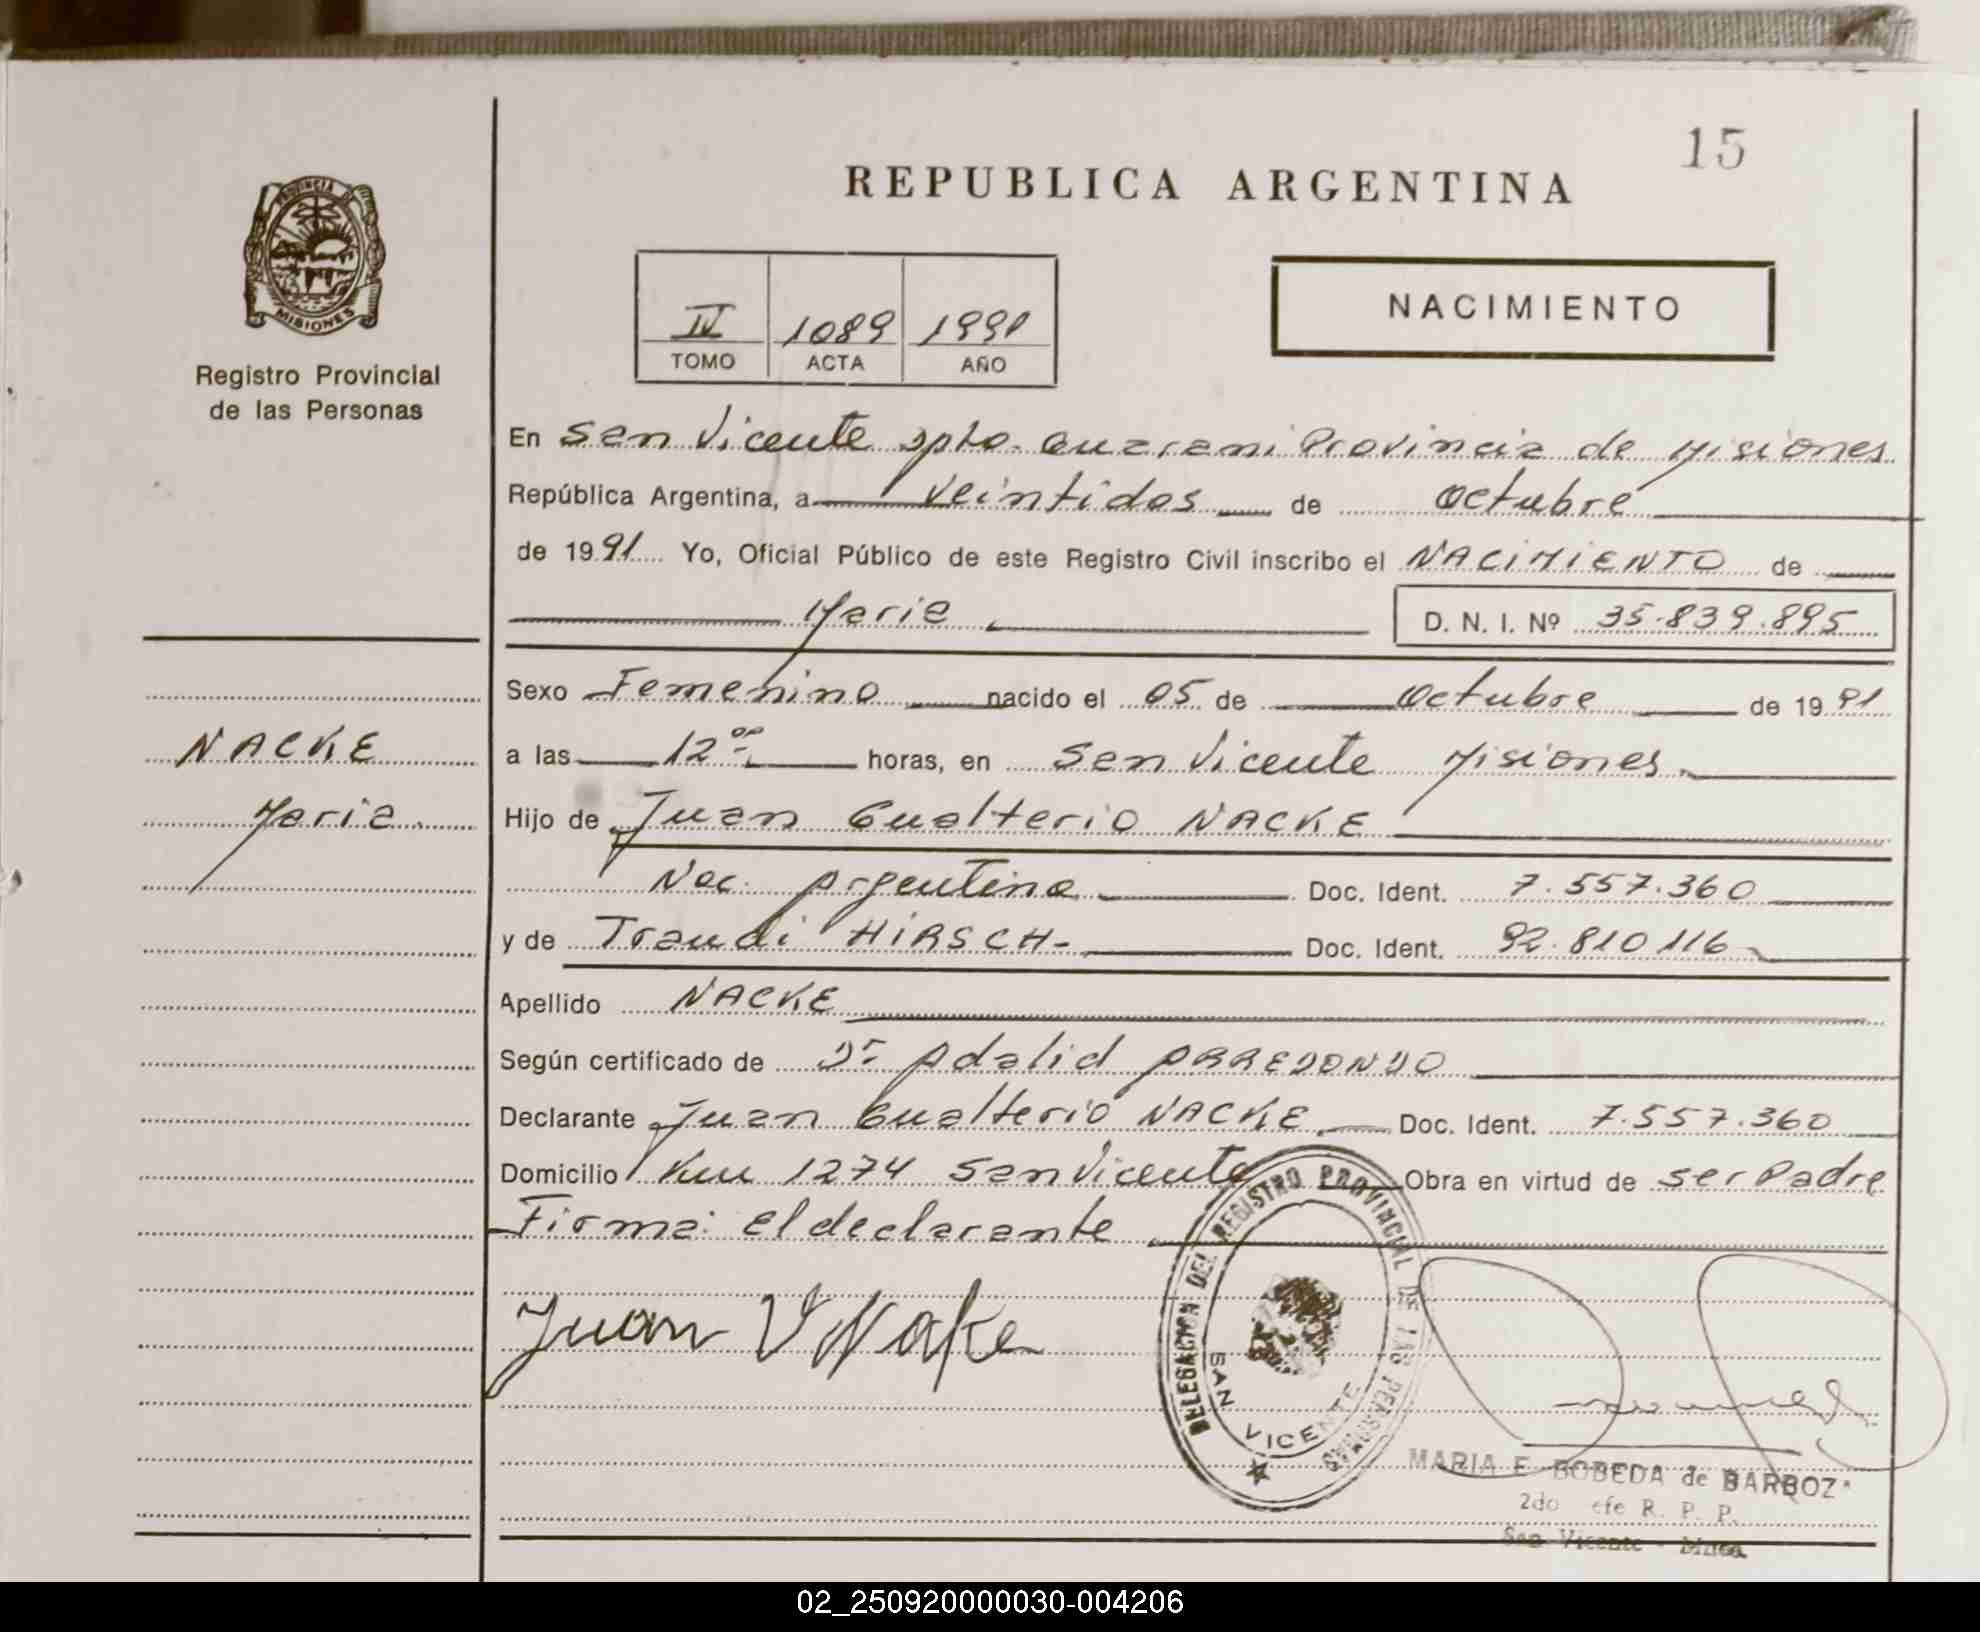 15
REPUBLICA ARGENTINA
PROVINCIA DE
MISIONES
Registro Provincial
de las Personas
IV 1089 1991
TOMO ACTA AÑO
NACIMIENTO
En San Vicente Dpto. Guarani Provincia de Misiones
República Argentina, a veintidos de octubre
de 1991 Yo, Oficial Público de este Registro Civil inscribo el NACIMIENTO de
Maria D. N. I. Nº 35.839.895
Sexo Femenino nacido el 05 de octubre de 1991
NACKE
Maria.
a las 12 00 horas, en San Vicente Misiones.
Hijo de Juan Gualterio NACKE
Nac. Argentina Doc. Ident. 7.557.360
y de Traudi HIRSCH- Doc. Ident. 92.810116
Apellido NACKE
Según certificado de Dr Adalid ARREDONDO
Declarante Juan Gualterio NACKE Doc. Ident. 7.557.360
Domicilio Km 1274 San Vicente Obra en virtud de ser Padre
Firma: El declarante
Juan W Nake
DELEGACION DEL REGISTRO PROVINCIAL DE LAS PERSONAS
SAN VICENTE
MARIA E. BOBEDA de BARBOZ
2do efe R. P. P.
San Vicente - Mnes.
02_250920000030-004206